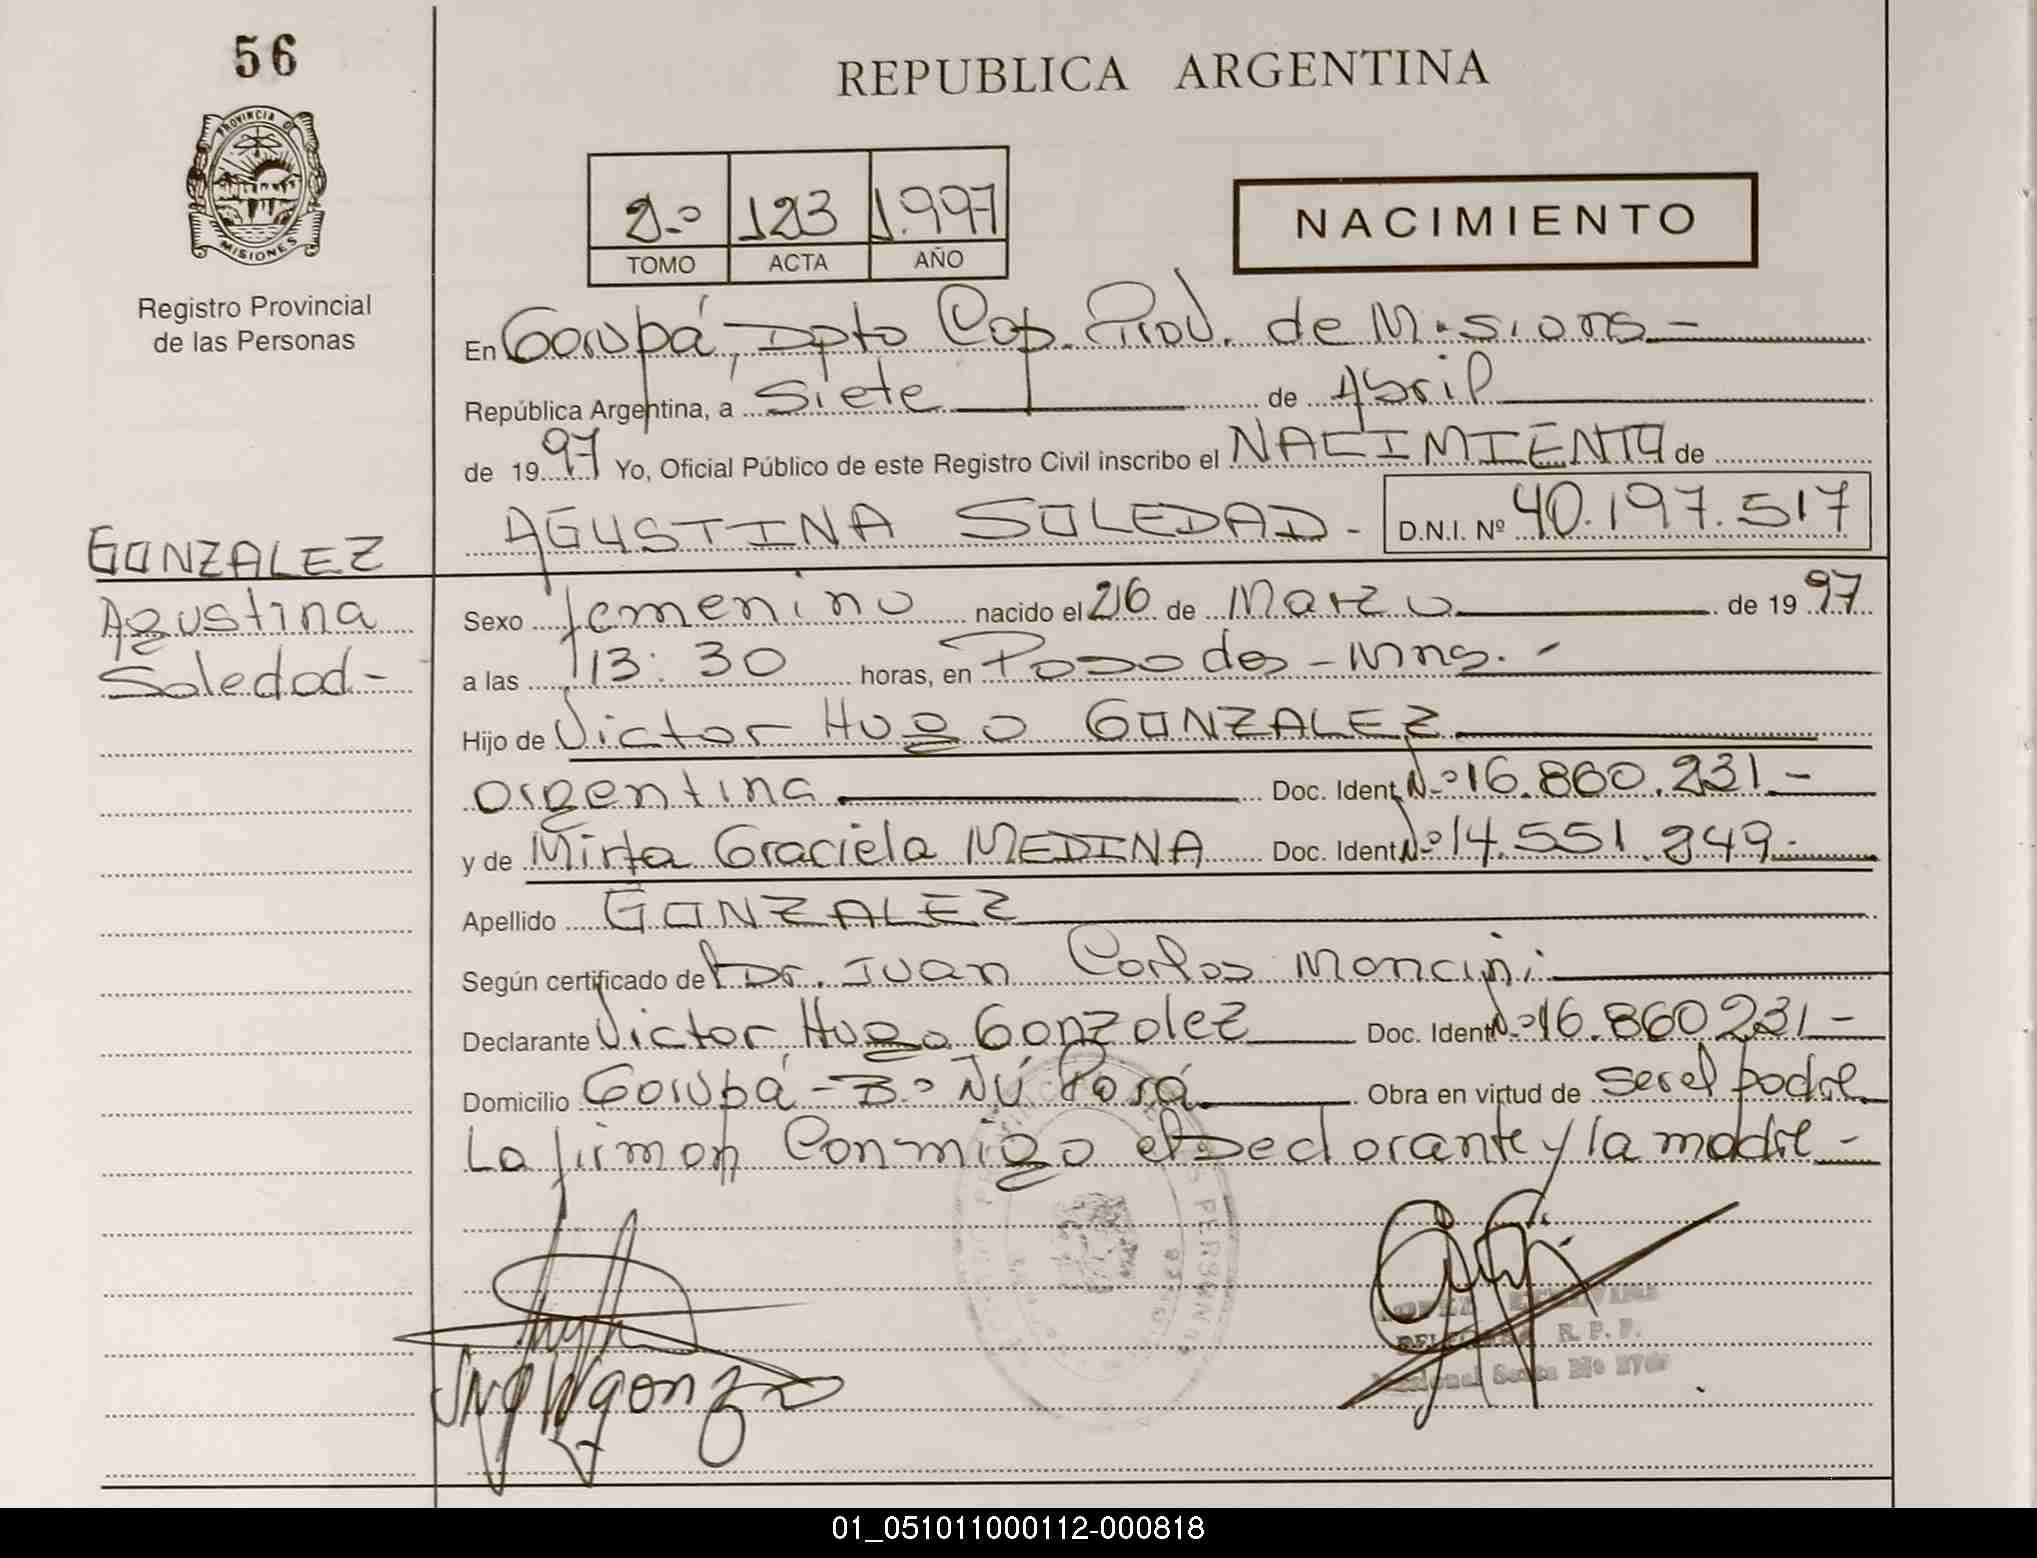 56
REPUBLICA ARGENTINA
PROVINCIA DE
MISIONES
Registro Provincial
de las Personas
2º 123 1.997
TOMO ACTA AÑO
NACIMIENTO
En Garupá, Dpto Cap. Prov. de Misions.-
República Argentina, a Siete de Abril
de 1997 Yo, Oficial Público de este Registro Civil inscribo el NACIMIENTO de
AGUSTINA SOLEDAD - D.N.I. Nº 40.197.517
GONZALEZ
Agustina
Soledad-
Sexo femenino nacido el 26 de Marzo de 1997
a las 13:30 horas, en Posadas - Mns. -
Hijo de Victor Hugo GONZALEZ
argentina Doc. Ident. Nº 16.860.231-
y de Mirta Graciela MEDINA Doc. Ident. Nº 14.551.249-
Apellido GONZALEZ
Según certificado de Dr. Juan Carlos Moncini
Declarante Victor Hugo Gonzalez Doc. Ident. Nº 16.860.231-
Domicilio Garupá - Bº Ñú Porá Obra en virtud de ser el padre
La firman Conmigo el Declarante y la madre-
R. P. P.
01_051011000112-000818